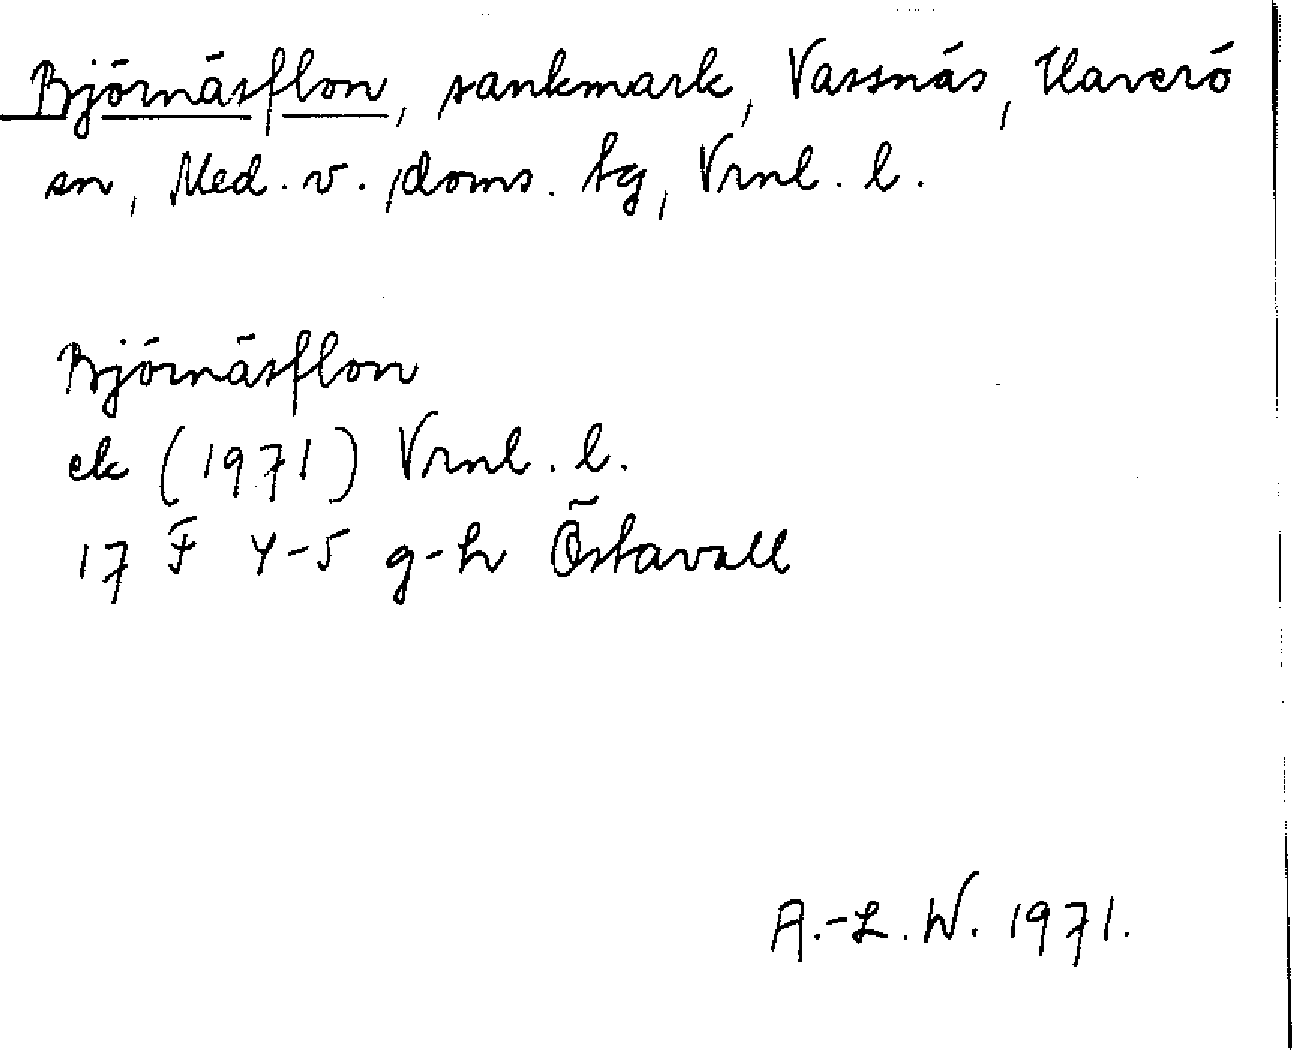 Björnåsflon, sankmark, Vassnäs, Haverö
sn, Med. v. doms. tg, Vrnl. l.
Björnåsflon
ek (1971) Vrnl. l.
17 F 4-5 g-h Östavall
A.-L. W. 1971.